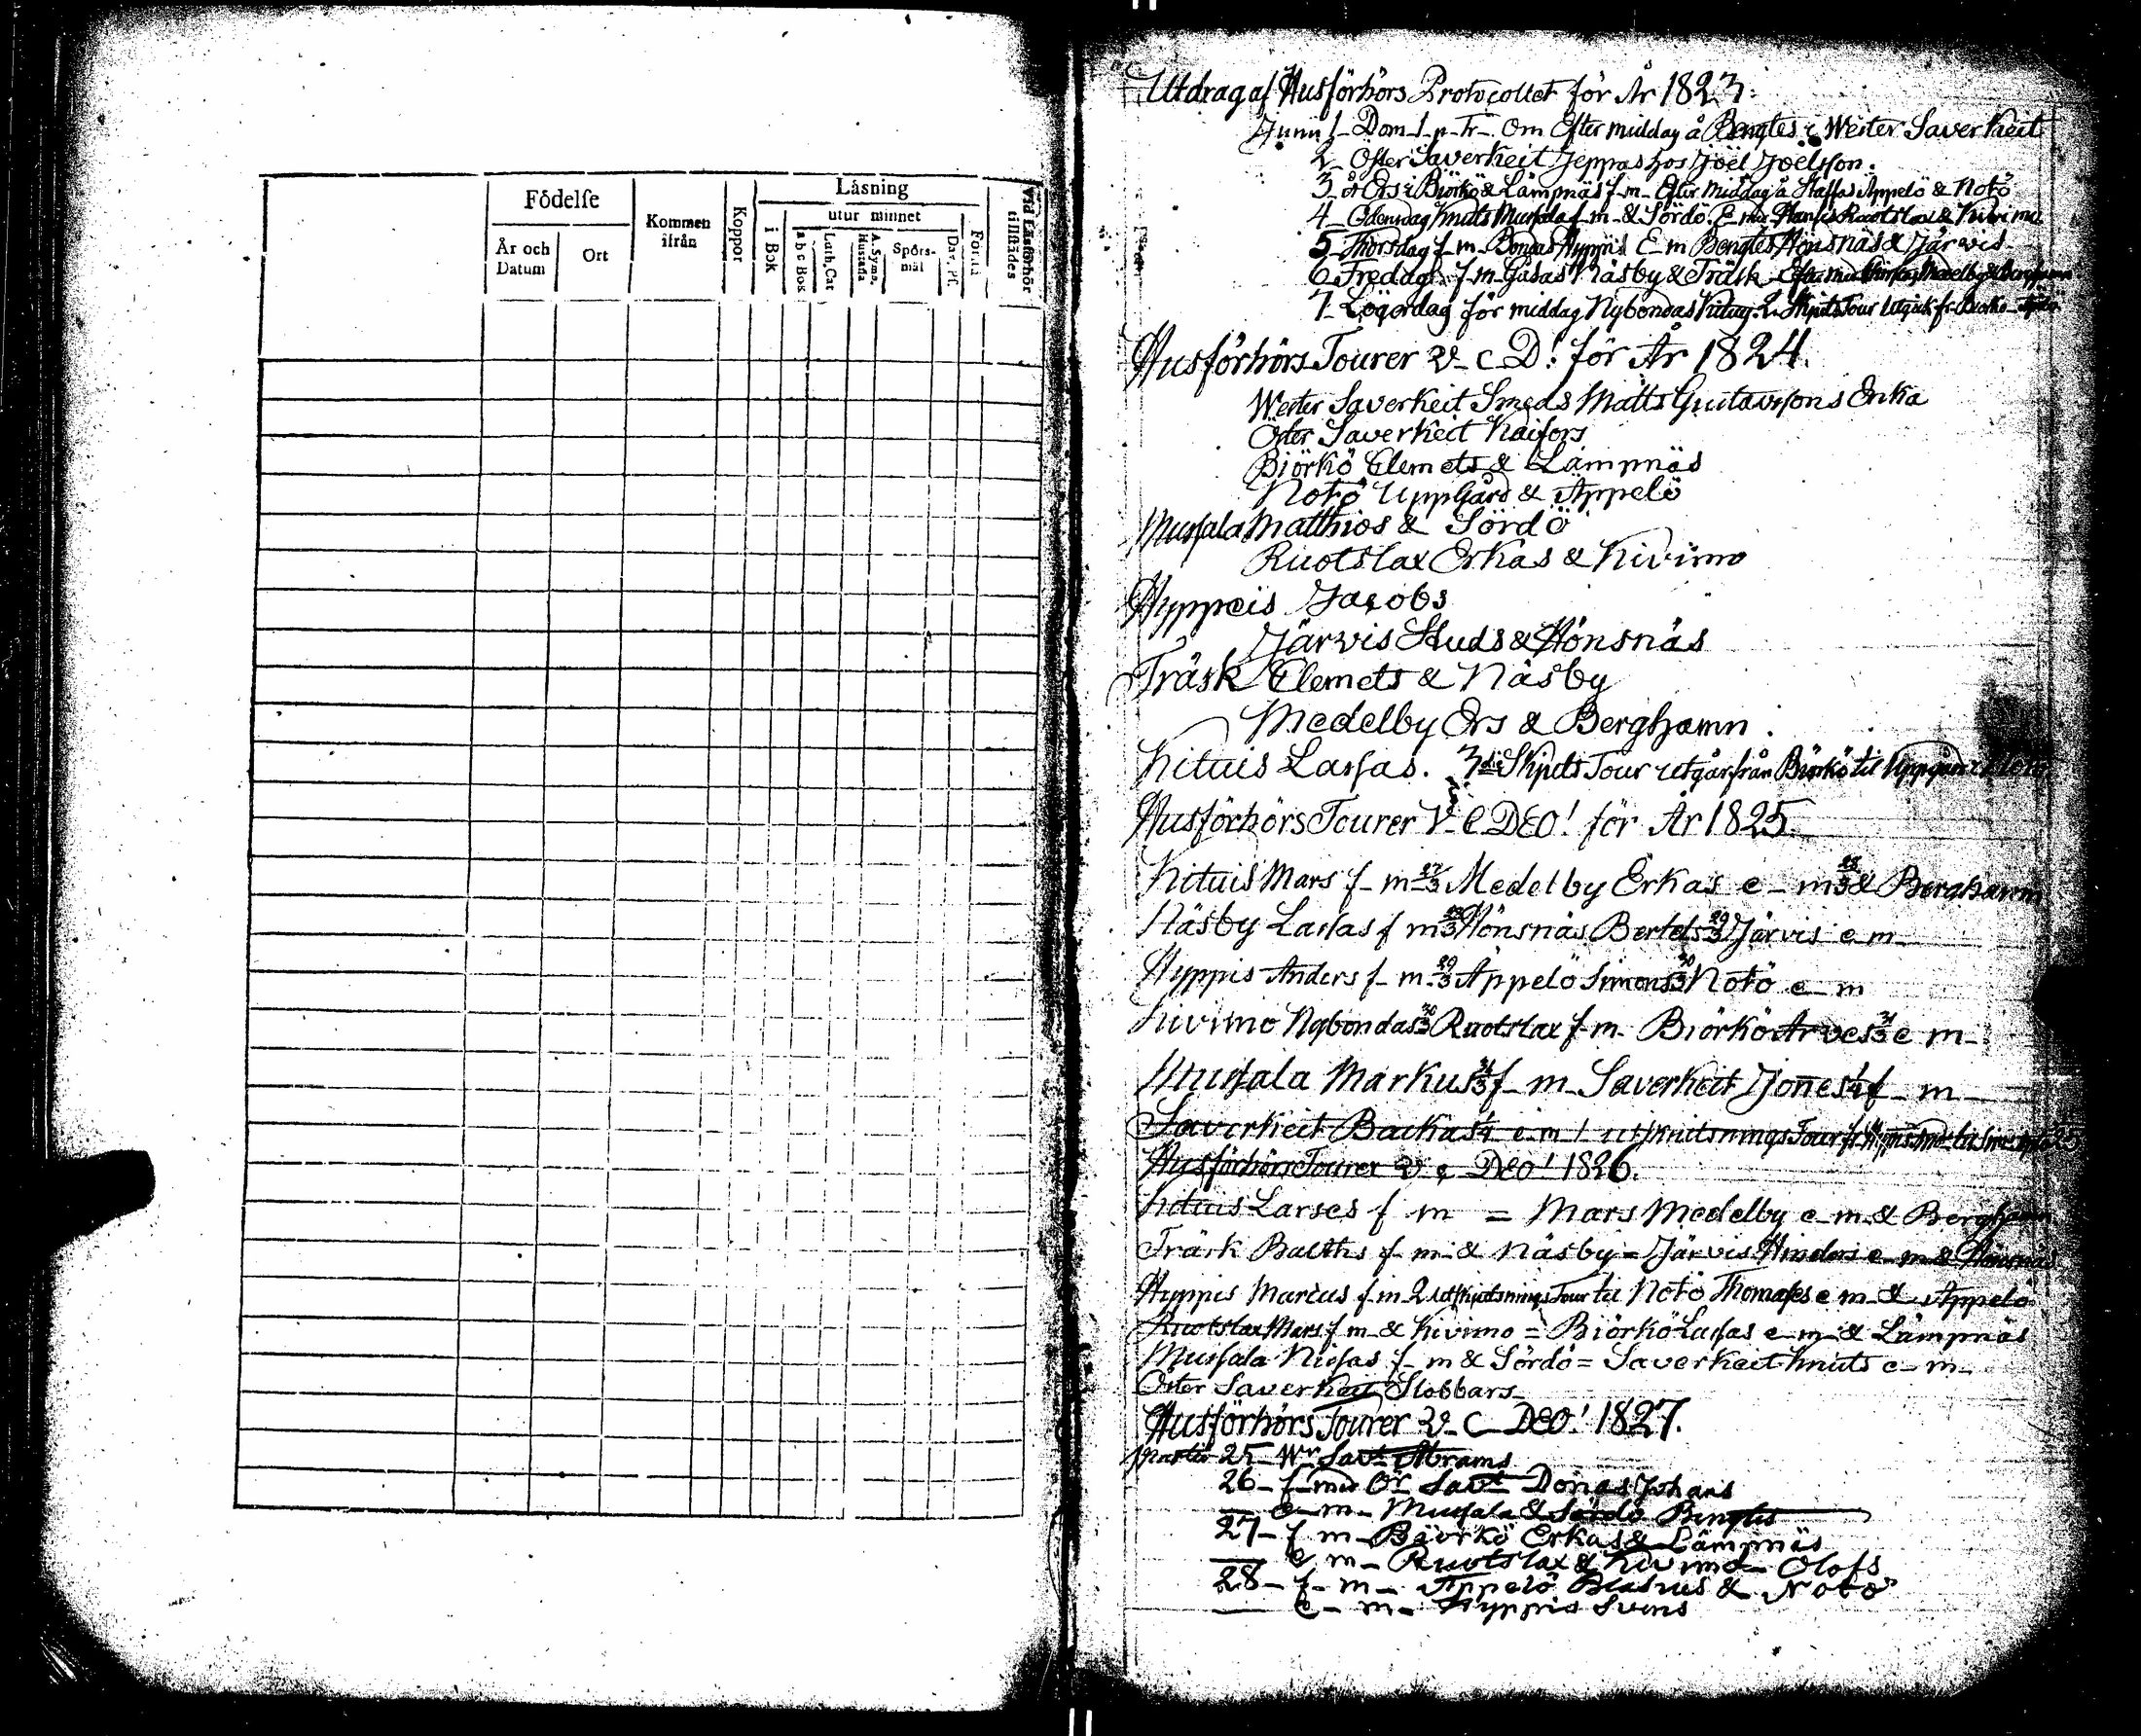 Födelse
Kommen ifrån
Koppor
Låsning
utur minnet
Vid Läsförhör tillstädes
År och Datum
Ort
i Bok
a b c Bok
Luth. Cat
A. Symb. Hustafla
Spörsmål
Dav. Ps.
Förstå
Utdrag af Husförhörs Protocollet för År 1823.
Junii 1 - Dom 1 p. Tr. Om Efter middag å Bengtes i Wester Saverkeit
2 Öster Saverkeit Jeppas hos Joël Joëlsson.
3 å Ers i Biörkö & Lämpnäs f m - Efter middag å Staffas Appelö & Notö
4 - Odensdag Knuts Mussala f m - & Sördö. E Ruotslax & Kivimo
5 Thorsdag f m Bondas Hyppis E m Bengtes Hönsnäs & Järvis
6 Fredag f m Gåsas Näsby & Träsk Medelby & Berghamn
7 Lögerdag för middag Nybondas Skjuts Tour utgick fr. Biörkö
Husförhörs Tourer V - C D! för År 1824.
Wester Saverkeit Smeds Matts Gustavssons Enka
Öster Saverkeit Kaifors
Biörkö Clemets & Lämpnäs
Notö UppGård & Appelö
Mussala Matthios & Sördö
Ruotslax Erkas & Kivimo
Hyppeis Jacobs
Järvis Studs & Hönsnäs
Träsk Clemets & Näsby
Medelby Ers & Berghamn.
Kituis Lassas. 3die Skjuts Tour utgår från Biörkö til Uppgård i Notö
Husförhörs Tourer V - C DEO! för År 1825.
Kituis Mars f - m 27/3 Medelby Erkas e - m 28/3 & Berghamn
Näsby Lassas f m Hönsnäs Bertels 29/3 Järvis e m
Hyppis Anders f - m 29/3 Appelö Simons 30/3 Notö e - m
Kivimo Nybondas 30/3 Ruotslax f m Biörkö Arves 31/3 e m
Mussala Markus 31/3 f - m Saverkeit Jones 1/4 f - m
Saverkeit Backas 1/4 e m 1 utskjutsnings Tour
Husförhörs Tourer V C DEO! 1826.
Kituis Larses f m = Mars Medelby e - m & Berghamn
Träsk Balths f m & Näsby = Järvis Hinders e m & Hönsnäs
Hyppis Marcus f m 2 utskjutsnings Tour til Notö Thomases e m & Appelö
Ruotslax Mars f m & Kivimo = Biörkö Lassas e m & Lämpnäs
Mussala Niosas f - m & Sördö = Saverkeit Knuts e - m
Öster Saverkeit Slobbars
Husförhörs Tourer V - C DEO! 1827.
Martii 25 - Wr Savt Abrams
26 - f mid Ör Savt Donas Johans
e - m - Mussala & Sördö Bengtes
27 - f m - Biörkö Erkas & Lämpnäs
e m - Ruotslax & Kivimo - Olofs
28 - f - m - Appelö Blasius & Notö
e - m - Hyppis Svens